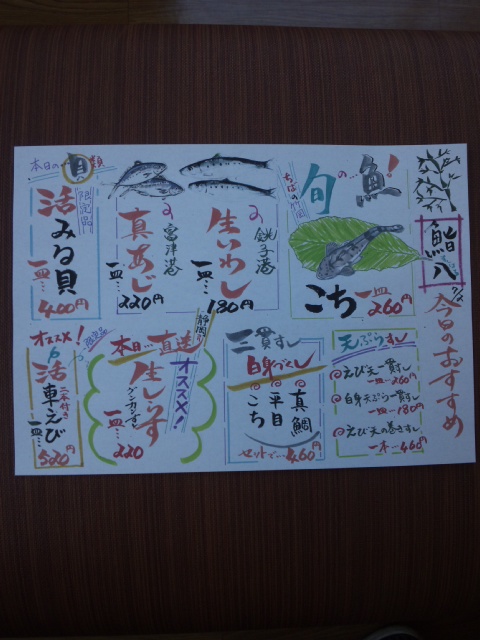 鮨八
今日のおすすめ
旬の…魚!
ちばの竹岡
こち
一皿…260円
の
銚子港
生いわし
一皿…180円
の
宮津港
真あじ
一皿…220円
本日の貝類
限定品
活みる貝
一皿…460円
天ぷらすし
えび天一貫すし
一皿…260円
白身天ぷら一貫すし
一皿…180円
えび天の巻きすし
一本…460円
三貫すし
白身づくし
真鯛
平目
こち
セットで…460円
静岡の
本日…直送
オススメ!
生しらす
グンカンすし
一皿…220
オススメ!
限定品
活車えび
二本付き
一皿…520円